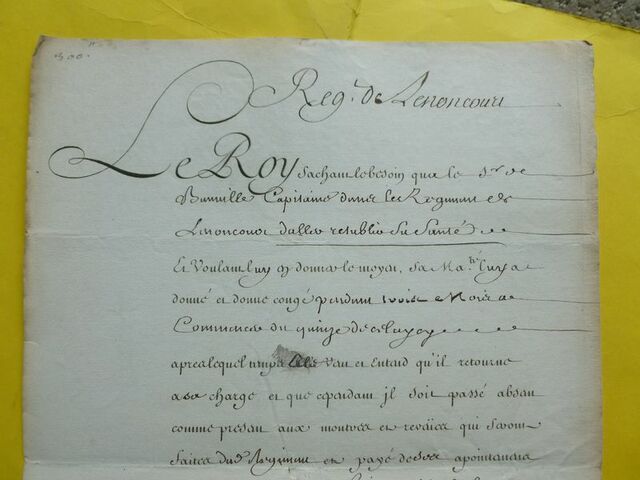 300.
Reg.t de Lenoncour
Le Roy sachant le besoin que le S.r de
Capitaine dans le Regiment de
Lenoncour d'aller retablir sa santé
Et Voulant luy en donner le moyen, sa Ma.té luy a
donné et donne congé pendant trois Mois a
Commencer du quinze de celuy cy
apres lequel temps Elle Veut et Entend qu'il retourne
a sa charge et que cependant jl soit passé absent
comme present aux montres et reveües qui seront
faites dud. Regiment et payé de ses apointemens